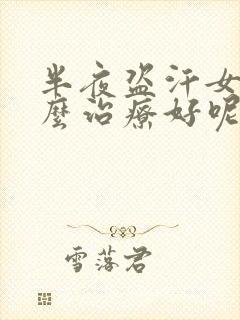 半夜盗汗女
麼治療好呢
雪落君